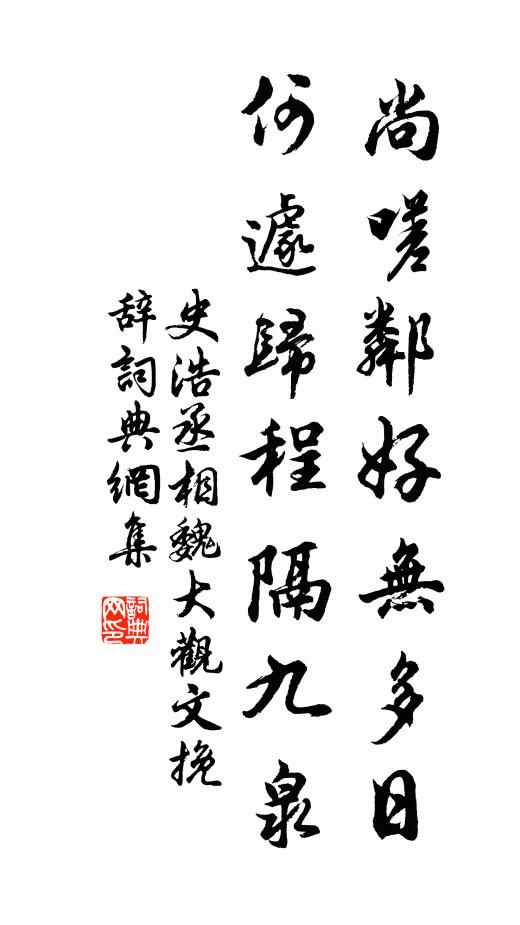 尚嗟鄰好無多日
何遽歸程隔九泉
史浩丞相魏大觀文挽
辭詞典網集
詞典網印